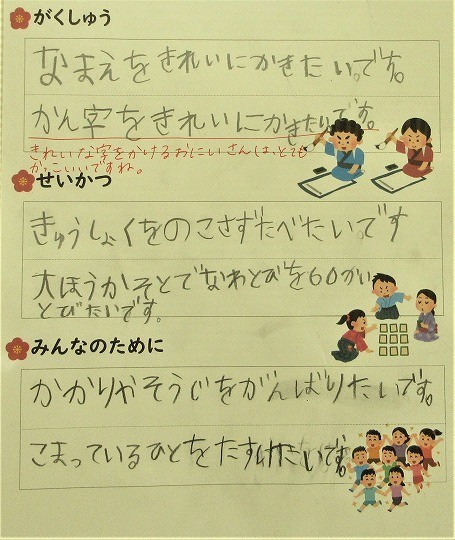 がくしゅう
なまえをきれいにかきたいです。
かん字をきれいにかきたいです。
きれいな字をかけるおにいさんは、とても
かっこいいですね。
せいかつ
きゅうしょくをのこさずたべたいです
大ほうかそとでなわとびを60かい
とびたいです。
みんなのために
かかりやそうじをがんばりたいです。
こまっているひとをたすけたいです。